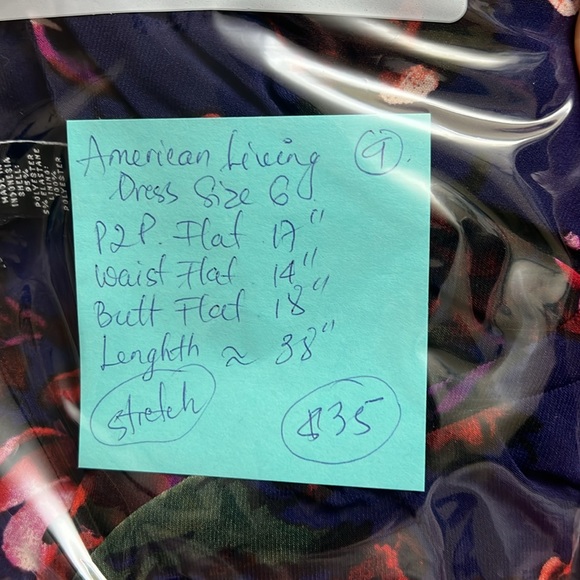 American Living 9.
Dress Size 6
P2P. Flat 17"
Waist Flat 14"
Butt Flat 18"
Lenghth ≈ 38"
Stretch $35